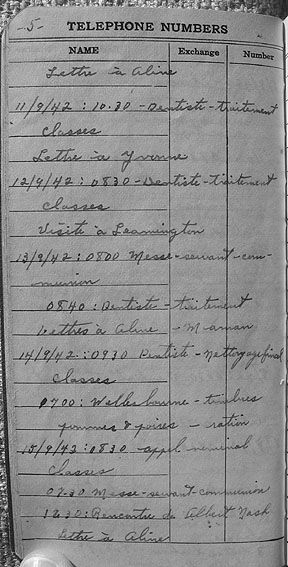 -5-
TELEPHONE NUMBERS
NAME Exchange Number
Lettre à Aline
11/9/42 : 10.30 - Dentiste - traitement
Classes
Lettre à Yvonne
12/9/42 : 0830 - Dentiste - traitement
Classes
Visite à Leamington
13/9/42 : 0800 Messe - servant - com-
munion
0840 : Dentiste - traitement
Lettres à Aline - Maman
14/9/42 : 0930 Dentiste - Nettoyage final
Classes
0700 : Wellesbourne - timbres
pommes & poires - ration
15/9/42 : 0830 - appel nominal
Classes
07.30 Messe - servant - communion
12.30 : Rencontre de Albert Nash
Lettre à Aline